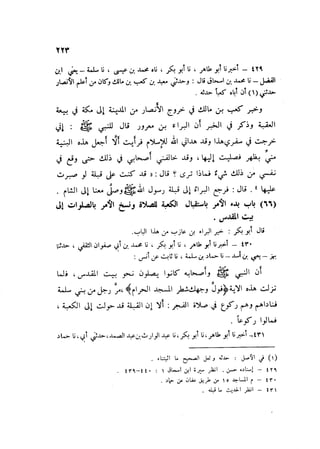 ٢٢٣
٤٢٩ – أخبرنا أبو طاهر ، نا أبو بكر ، ناه محمد بن عيسى ، نا سلمة – يعني ابن
الفضل – نا محمد بن اسحاق قال : وحدثني معبد بن كعب بن مالك وكان من أعلم الأنصار
حدثني (١) أن أباه كعباً حدثه .
وخبر كعب بن مالك في خروج الأنصار من المدينة إلى مكة في بيعة
العقبة وذكر في الخبر أن البراء بن معرور قال للنبي ﷺ : إني
خرجت في سفري هذا وقد هداني الله للإسلام فرأيت ألا أجعل هذه البنية
مني بظهر فصليت إليها ، وقد خالفني أصحابي في ذلك حتى وقع في
نفسي من ذلك شيء فماذا ترى ؟ قال : « قد كنت على قبلة لو صبرت
عليها » . قال : فرجع البراء إلى قبلة رسول الله ﷺ وصلى معنا إلى الشام .
(٦٦) باب بدء الأمر باستقبال الكعبة للصلاة ونسخ الأمر بالصلوات إلى
بيت المقدس .
قال أبو بكر : خبر البراء بن عازب من هذا الباب .
٤٣٠ – أخبرنا أبو طاهر ، نا أبو بكر ، نا محمد بن أبي صفوان الثقفي ، حدثنا
بهز – يعني بن أسد – نا حماد بن سلمة ، نا ثابت عن أنس :
أن النبي ﷺ وأصحابه كانوا يصلون نحو بيت المقدس ، فلما
نزلت هذه الآية ﴿فول وجهك شطر المسجد الحرام﴾ مر رجل من بني سلمة
فناداهم وهم ركوع في صلاة الفجر : ألا إن القبلة قد حولت إلى الكعبة ،
فمالوا ركوعاً .
٤٣١– أخبرنا أبو طاهر ، نا أبو بكر ، نا عبد الوارث بن عبد الصمد ، حدثني أبي ، نا حماد
(١) في الأصل : حدثه ولعل الصحيح ما اثبتناه .
٤٢٩ – إسناده حسن . انظر سيرة ابن اسحاق ١ : ٤٤٠–٤٣٩ .
٤٣٠ – م المساجد ١٥ من طريق عفان عن حماد .
٤٣١ – انظر الحديث ما قبله .